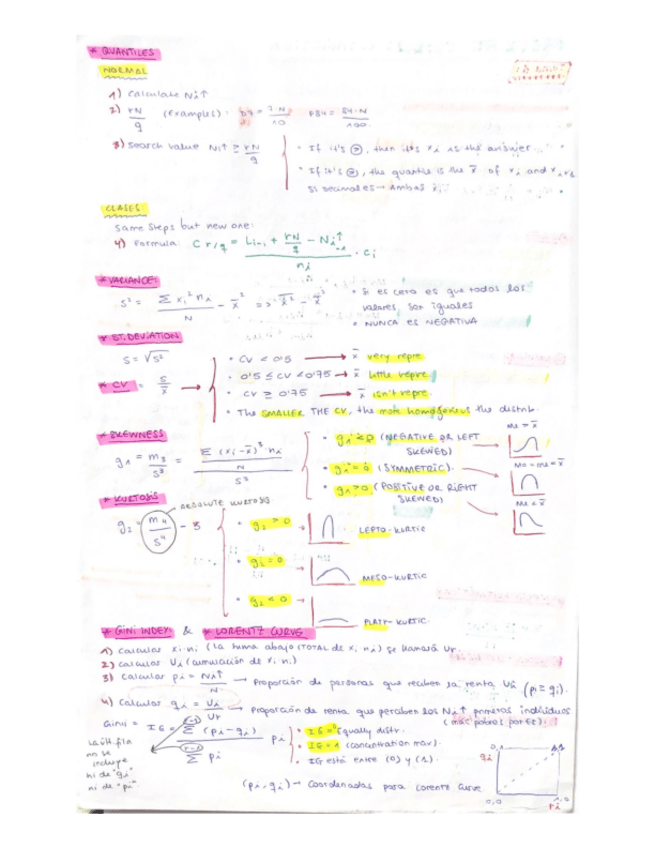 * QUANTILES
NORMAL
1) Calculate Ni↑
2) rN/q (Examples). D7 = 7·N/10 P84 = 84·N/100
3) Search value Ni↑ ≥ rN/q
· If it's >, then it's xi as the answer
· If it's =, the quantile is the x̄ of xi and xi+1
Si decimales → Ambas
CLASES
Same steps but new one:
4) Formula: C r/q = Li-1 + (rN/q - Ni-1↑)/ni · ci
* VARIANCE:
S² = Σ xi² ni / N - x̄²
· Si es cero es que todos los valores son iguales
· NUNCA es NEGATIVA
* ST. DEVIATION
S = √S²
* CV = S/x̄ →
· CV < 0'5 → x̄ very repre.
· 0'5 ≤ CV < 0'75 → x̄ little repre.
· CV ≥ 0'75 → x̄ isn't repre.
· The SMALLER THE CV, the more homogeneous the distrib.
* SKEWNESS
g1 = m3/S³ = (Σ (xi - x̄)³ ni / N) / S³
· g1 < 0 (NEGATIVE OR LEFT SKEWED)
· g1 = 0 (SYMMETRIC)
· g1 > 0 (POSITIVE OR RIGHT SKEWED)
Mo = Me = x̄
* KURTOSIS
ABSOLUTE KURTOSIS
g2 = m4/S⁴ - 3
· g2 > 0 → LEPTO-KURTIC
· g2 = 0 → MESO-KURTIC
· g2 < 0 → PLATY-KURTIC
* GINI INDEX & * LORENTZ CURVE
1) Calcular xi·ni (la suma abajo (TOTAL de xi ni) se llamará Ur
2) Calcular Ui (acumulación de xi ni)
3) Calcular pi = Ni↑/N → Proporción de personas que reciben la renta Ui (pi ≥ qi).
4) Calcular qi = Ui/Ur → Proporción de renta que perciben los Ni↑ primeros individuos
(más pobres por ej).
Gini = IG = Σ (pi - qi) / Σ pi
r-1
r-1
La últ. fila
no se
incluye
ni de "qi"
ni de "pi"
· IG = 0 Equally distr.
· IG = 1 (concentration max).
· IG está entre (0) y (1).
qi
0,0
pi
(pi, qi) → Coordenadas para Lorentz Curve